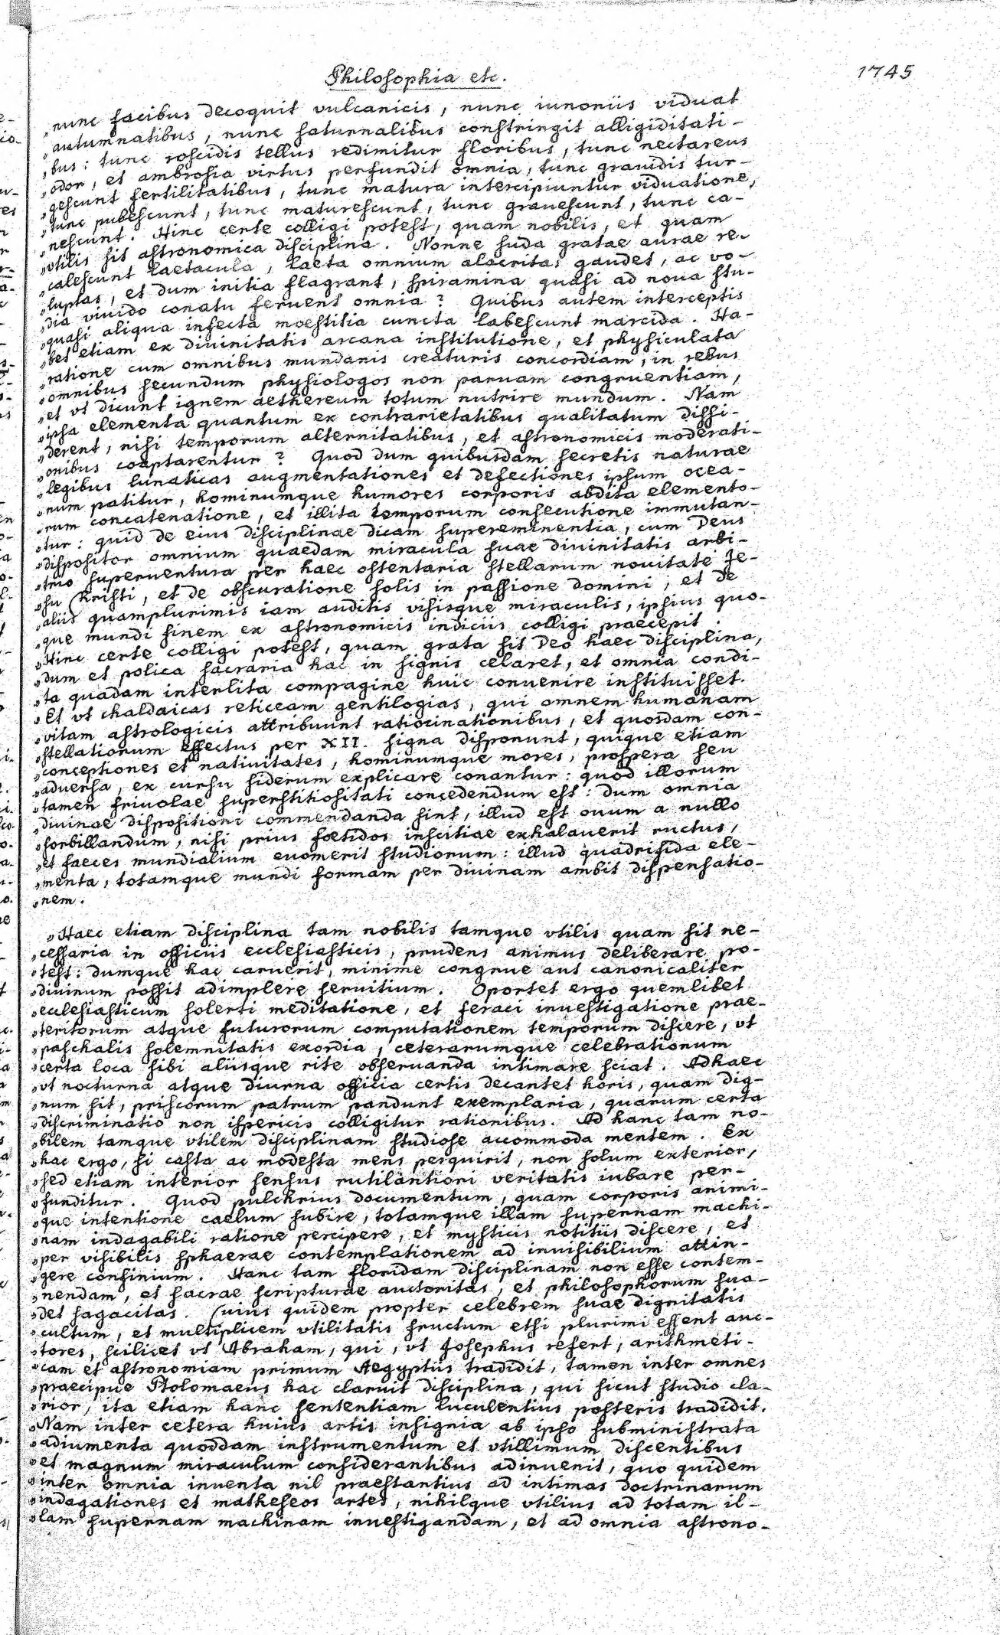 Philosophia etc.
1745
„nunc facibus decoquit vulcanicis, nunc iunoniis viduat
„autumnatibus, nunc saturnalibus constringit alligiditati-
„bus: tunc roscidis tellus redimitur floribus, tunc nectareus
„odor, et ambrosia virtus perfundit omnia, tunc grauidis tur-
„gescunt fertilitatibus, tunc matura intercipiuntur viduatione,
„tunc pubescunt, tunc maturescunt, tunc grauescunt, tunc ca-
„nescunt. Hinc certe colligi potest, quam nobilis, et quam
„vtilis sit astronomica disciplina. Nonne suda gratae aurae re-
„calescunt laetacula, laeta omnium alacritas gaudet, ac vo-
„luptas, et dum initia flagrant, spiramina quasi ad noua stu-
„dia viuido conatu feruent omnia? Quibus autem interceptis
„quasi aliqua infecta moestitia cuncta labescunt marcida. Ha-
„bet etiam ex diuinitatis arcana institutione, et physiculata
„ratione cum omnibus mundanis creaturis concordiam, in rebus
„omnibus secundum physiologos non paruam congruentiam,
„et vt dicunt ignem aethereum totum nutrire mundum. Nam
„ipsa elementa quantum ex contrarietatibus qualitatum dissi-
„derent, nisi temporum alternitatibus, et astronomicis moderati-
„onibus coaptarentur? Quod dum quibusdam secretis naturae
„legibus lunaticas augmentationes et defectiones ipsum ocea-
„num patitur, hominumque humores corporis abdita elemento-
„rum concatenatione, et illita temporum consecutione immutan-
„tur: quid de eius disciplinae dicam supereminentia, cum Deus
„dispositor omnium quaedam miracula suae diuinitatis arbi-
„trio superuentura per haec ostentaria stellarum nouitate Je-
„su Kristi, et de obscuratione solis in passione domini, et de
„aliis quamplurimis iam auditis visisque miraculis, ipsius quo-
„que mundi finem ex astronomicis indiciis colligi praecepit.
„Hinc certe colligi potest, quam grata sit Deo haec disciplina,
„dum et polica sacraria hac in signis celaret, et omnia condi-
„ta quadam interlita compagine huic conuenire instituisset.
„Et vt chaldaicas reticeam gentilogias, qui omnem humanam
„vitam astrologicis attribuunt ratiocinationibus, et quosdam con-
„stellationum effectus per XII. signa disponunt, quique etiam
„conceptiones et natiuitates, hominumque mores, prospera seu
„aduersa, ex cursu siderum explicare conantur: quod illorum
„tamen friuolae superstitiositati concedendum est: dum omnia
„diuinae dispositioni commendanda sint, illud est ouum a nullo
„sorbillandum, nisi prius foetidos inscitiae exhalauerit ructus,
„et faeces mundialium euomerit studiorum: illud quadrifida ele-
„menta, totamque mundi formam per diuinam ambit dispensatio-
„nem.
„Haec etiam disciplina tam nobilis tamque vtilis quam sit ne-
„cessaria in officiis ecclesiasticis, prudens animus deliberare po-
„test: dumque hac caruerit, minime congrue aut canonicaliter
„diuinum possit adimplere seruitium. Oportet ergo quemlibet
„ecclesiasticum solerti meditatione, et feraci inuestigatione prae-
„teritorum atque futurorum computationem temporum discere, vt
„paschalis solemnitatis exordia, ceterarumque celebrationum
„certa loca sibi aliisque rite obseruanda intimare sciat. Adhaec
„vt nocturna atque diurna officia certis decantet horis, quam dig-
„num sit, priscorum patrum pandunt exemplaria, quarum certa
„discriminatio non ispericis colligitur rationibus. Ad hanc tam no-
„bilem tamque vtilem disciplinam studiose accommoda mentem. Ex
„hac ergo, si casta ac modesta mens perquirit, non solum exterior,
„sed etiam interior sensus rutilantiori veritatis iubare per-
„funditur. Quod pulchrius documentum, quam corporis animi-
„que intentione caelum subire, totamque illam supernam machi-
„nam indagabili ratione percipere, et mysticis notitiis discere, et
„per visibilis sphaerae contemplationem ad inuisibilium attin-
„gere confinium. Hanc tam floridam disciplinam non esse contem-
„nendam, et sacrae scripturae auctoritas, et philosophorum sua-
„det sagacitas. Cuius quidem propter celebrem suae dignitatis
„cultum, et multiplicem vtilitatis fructum etsi plurimi essent auc-
„tores, scilicet vt Abraham, qui, vt Josephus refert, arithmeti-
„cam et astronomiam primum Aegyptiis tradidit, tamen inter omnes
„praecipue Ptolomaeus hac claruit disciplina, qui sicut studio cla-
„rior, ita etiam hanc sententiam luculentius posteris tradidit.
„Nam inter cetera huius artis insignia ab ipso subministrata
„adiumenta quoddam instrumentum et vtillimum discentibus
„et magnum miraculum considerantibus adinuenit, quo quidem
„inter omnia inuenta nil praestantius ad intimas doctrinarum
„indagationes et matheseos artes, nihilque vtilius ad totam il-
„lam supernam machinam inuestigandam, et ad omnia astrono-